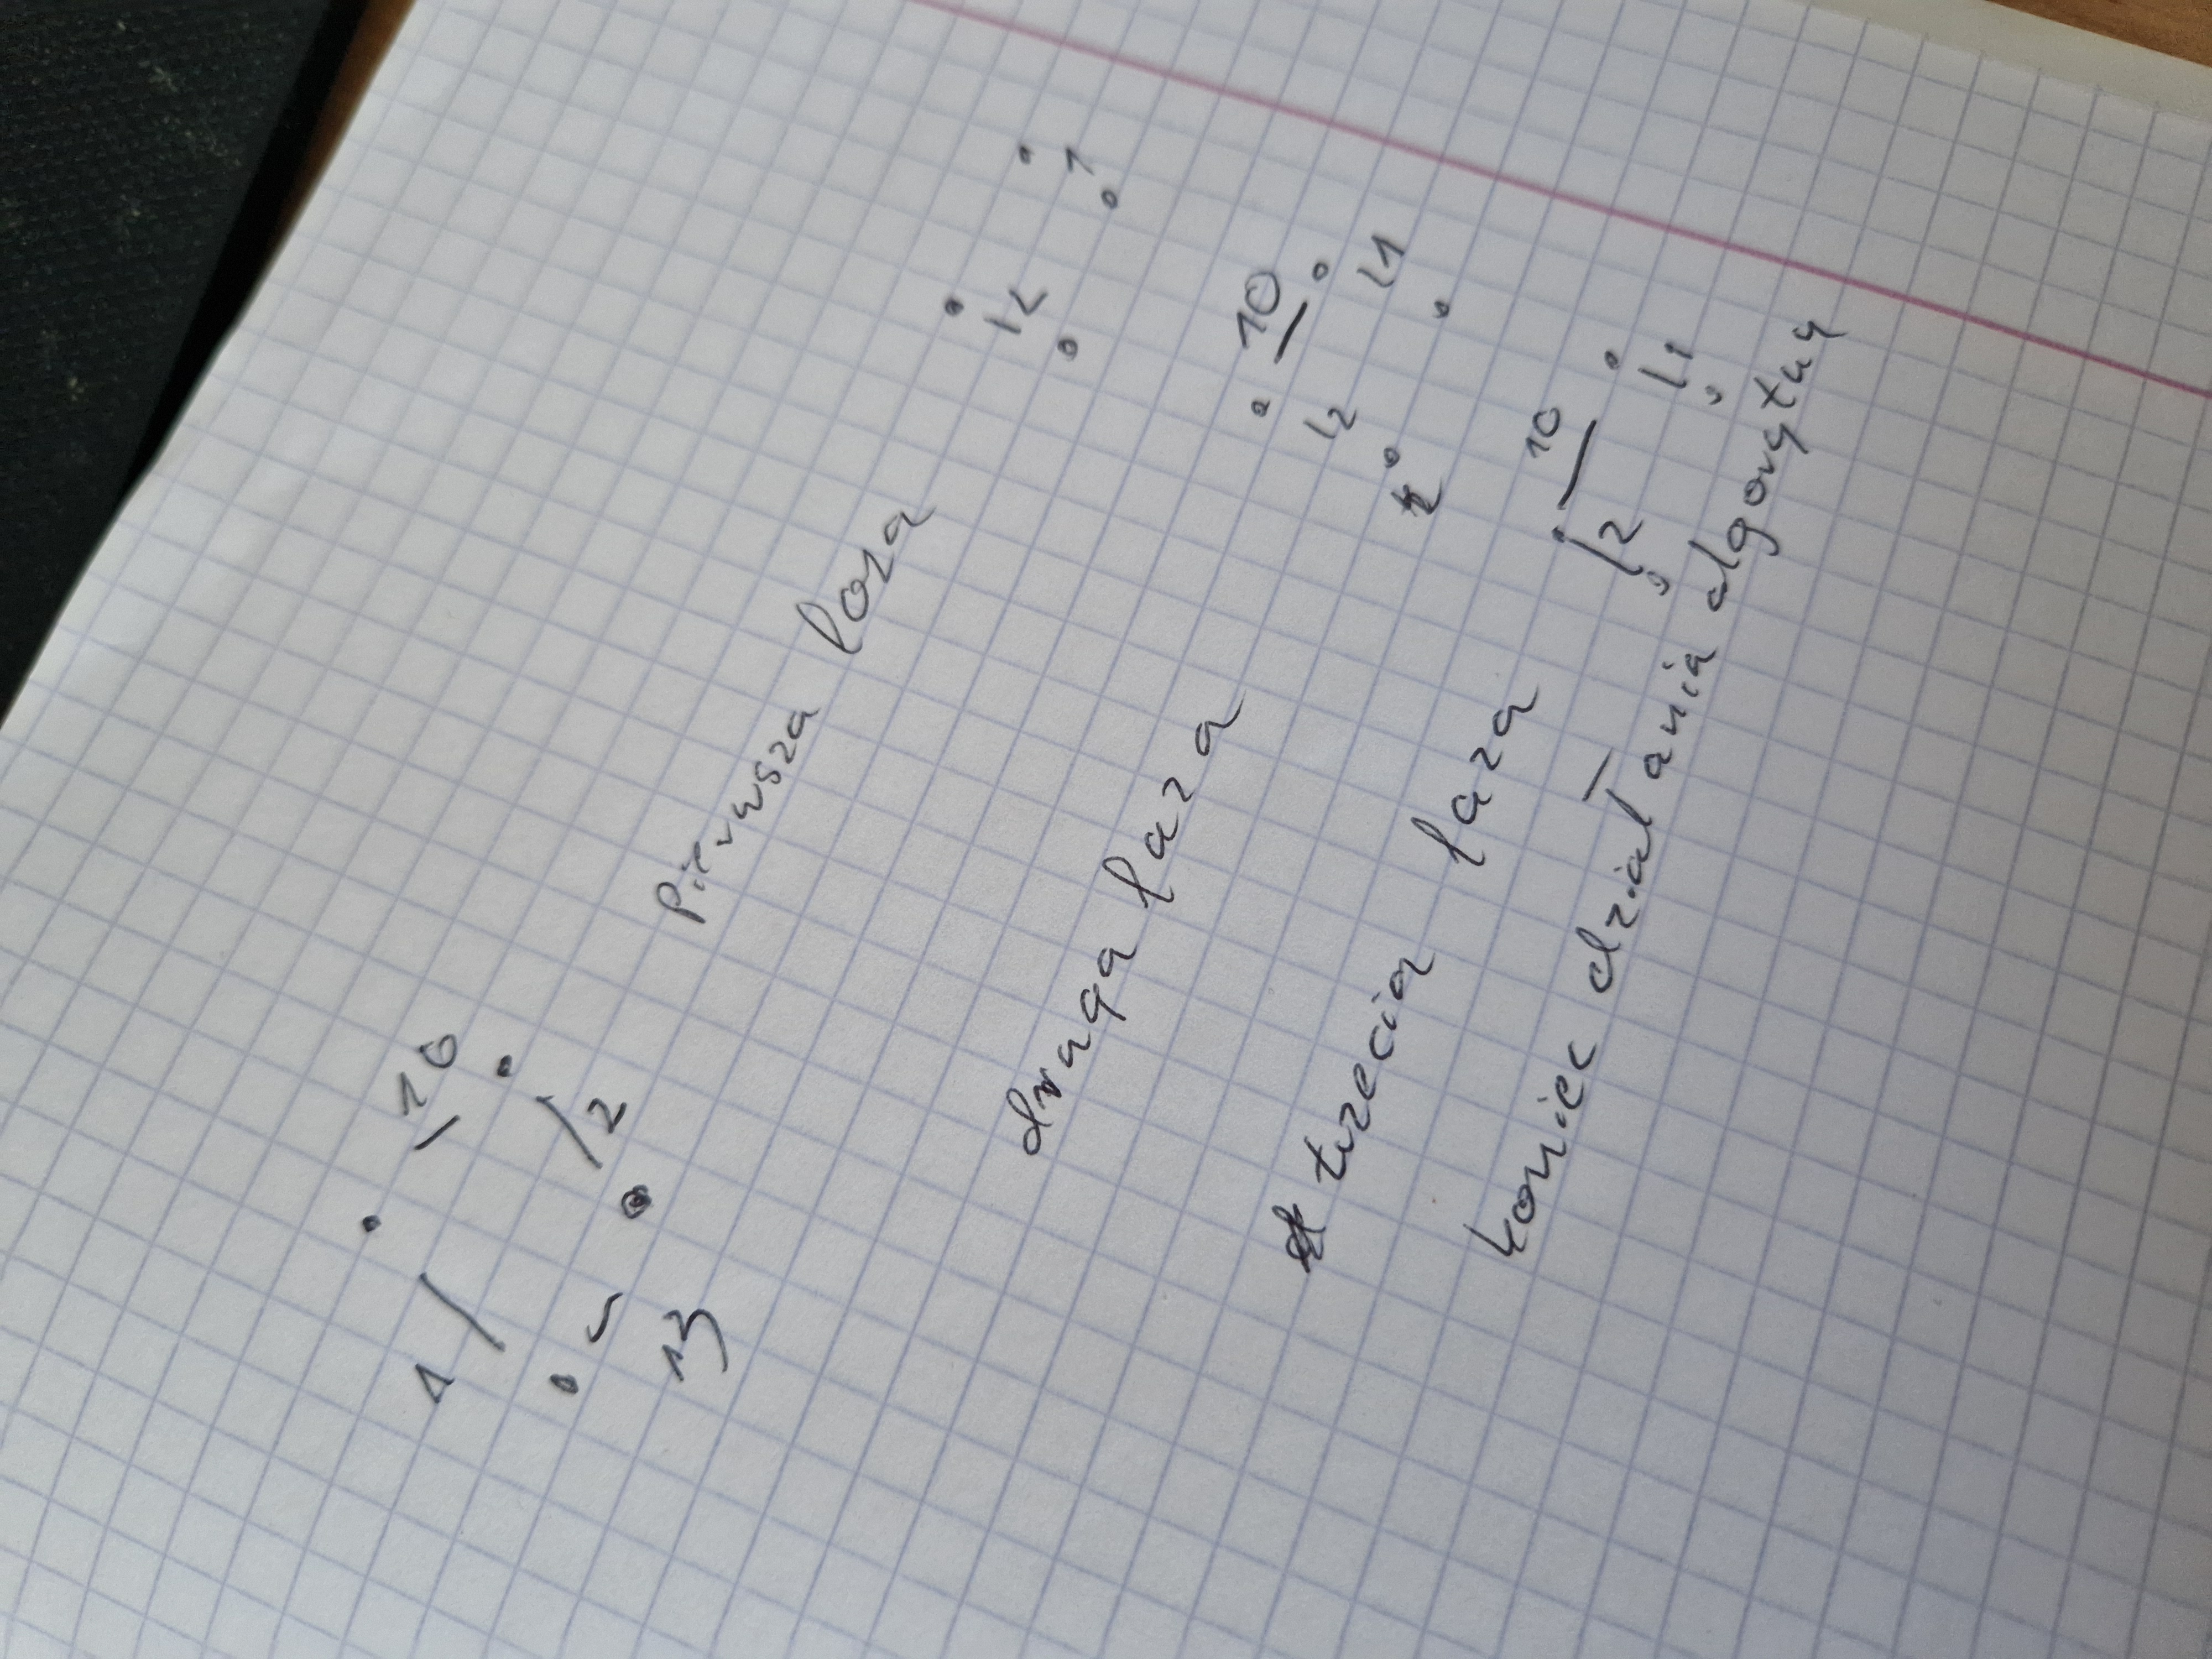 1
10
2
13
pierwsza faza
2
1
druga faza
10
2
1
trzecia faza
10
2
1
koniec działania algorytmy